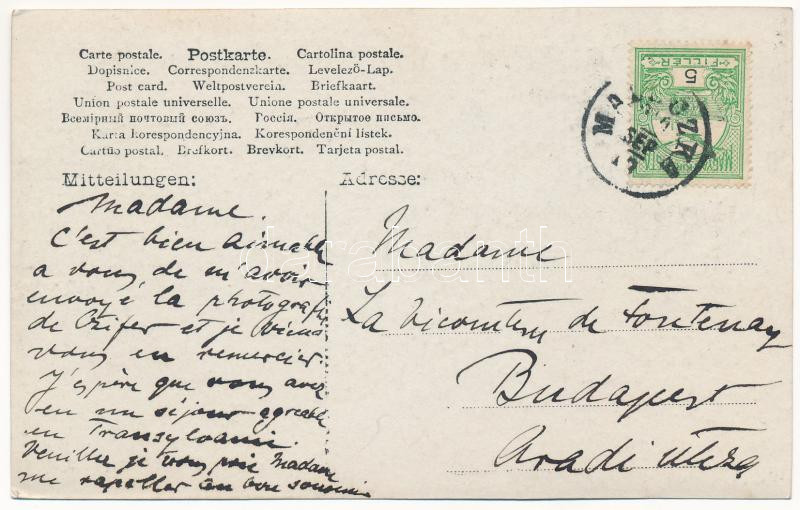 Carte postale. Postkarte. Cartolina postale.
Dopisnice. Correspondenzkarte. Levelező-Lap.
Post card. Weltpostverein. Briefkaart.
Union postale universelle. Unione postale universale.
Всемірный почтовый союзъ. Россія. Открытое письмо.
Karta korespondencyjna. Korespondenční lístek.
Cartão postal. Brefkort. Brevkort. Tarjeta postal.
Mitteilungen:
Madame.
C'est bien aimable
a vous, de m'avoir
envoyé la photografie
de et je viens
vous en remercier.
J'espère que vous avez
en un séjour agréable
en Transylvanie.
Veuillez je vous prie Madame
me rapeller en bon souvenir
Adresse:
Madame
La Vicomtesse de Fontenay
Budapest
Aradi utcza
FILLER
5
SEP
darabanth